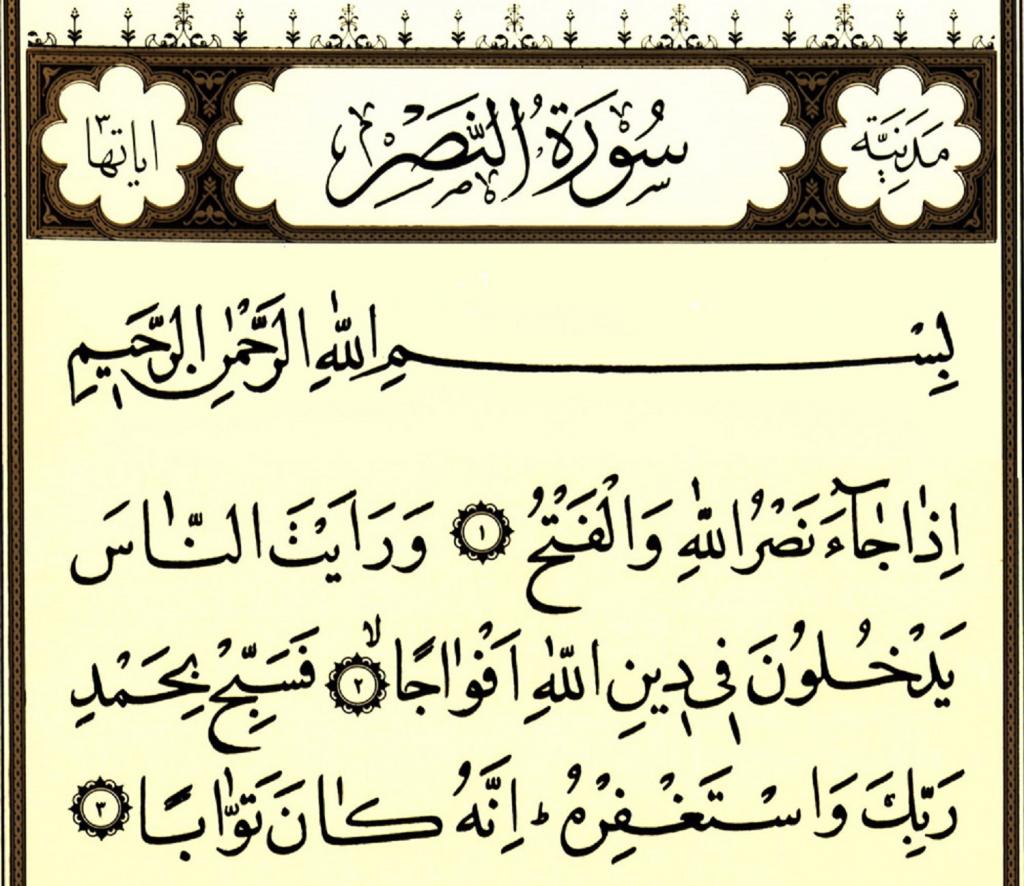 مَدَنِيَّة سُورَةُ النَّصْرِ اياتها ٣
بِسْمِ اللّٰهِ الرَّحْمٰنِ الرَّحِيمِ
اِذَا جَٓاءَ نَصْرُ اللّٰهِ وَالْفَتْحُ ١ وَرَاَيْتَ النَّاسَ
يَدْخُلُونَ فِي دِينِ اللّٰهِ اَفْوَاجًا ۙ ٢ فَسَبِّحْ بِحَمْدِ
رَبِّكَ وَاسْتَغْفِرْهُ ۜ اِنَّهُ كَانَ تَوَّابًا ٣